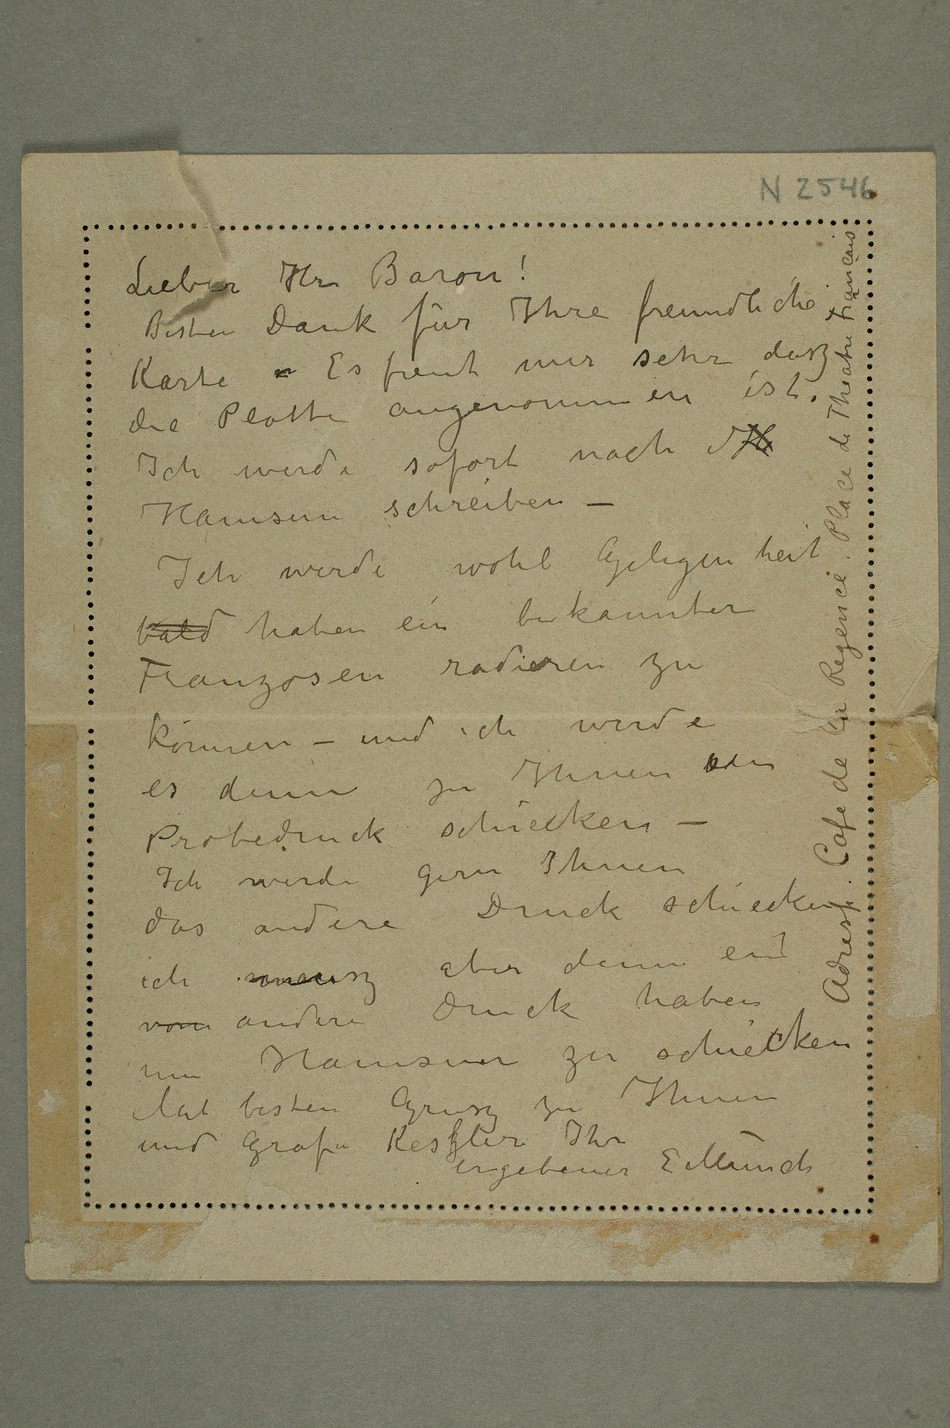 N 2546
Lieber Hr Baron!
Besten Dank für Ihre freundliche
Karte – Es freut mir sehr dasz
die Platte angenommen ist.
Ich werde sofort nach
Hamsun schreiben –
Ich werde wohl Gelegenheit
bald haben ein bekannter
Franzosen radieren zu
können – und ich werde
es denn zu Ihnen den
Probedruck schiecken –
Ich werde gern Ihnen
das andere Druck schiecken
ich musz aber denn ein
von andere Druck haben
um Hamsun zu schiecken
Mit besten Grusz zu Ihnen
und Grafn Keszler Ihr
ergebener E Munch
Adresse. Cafe de la Regence. Place de Theatre Français